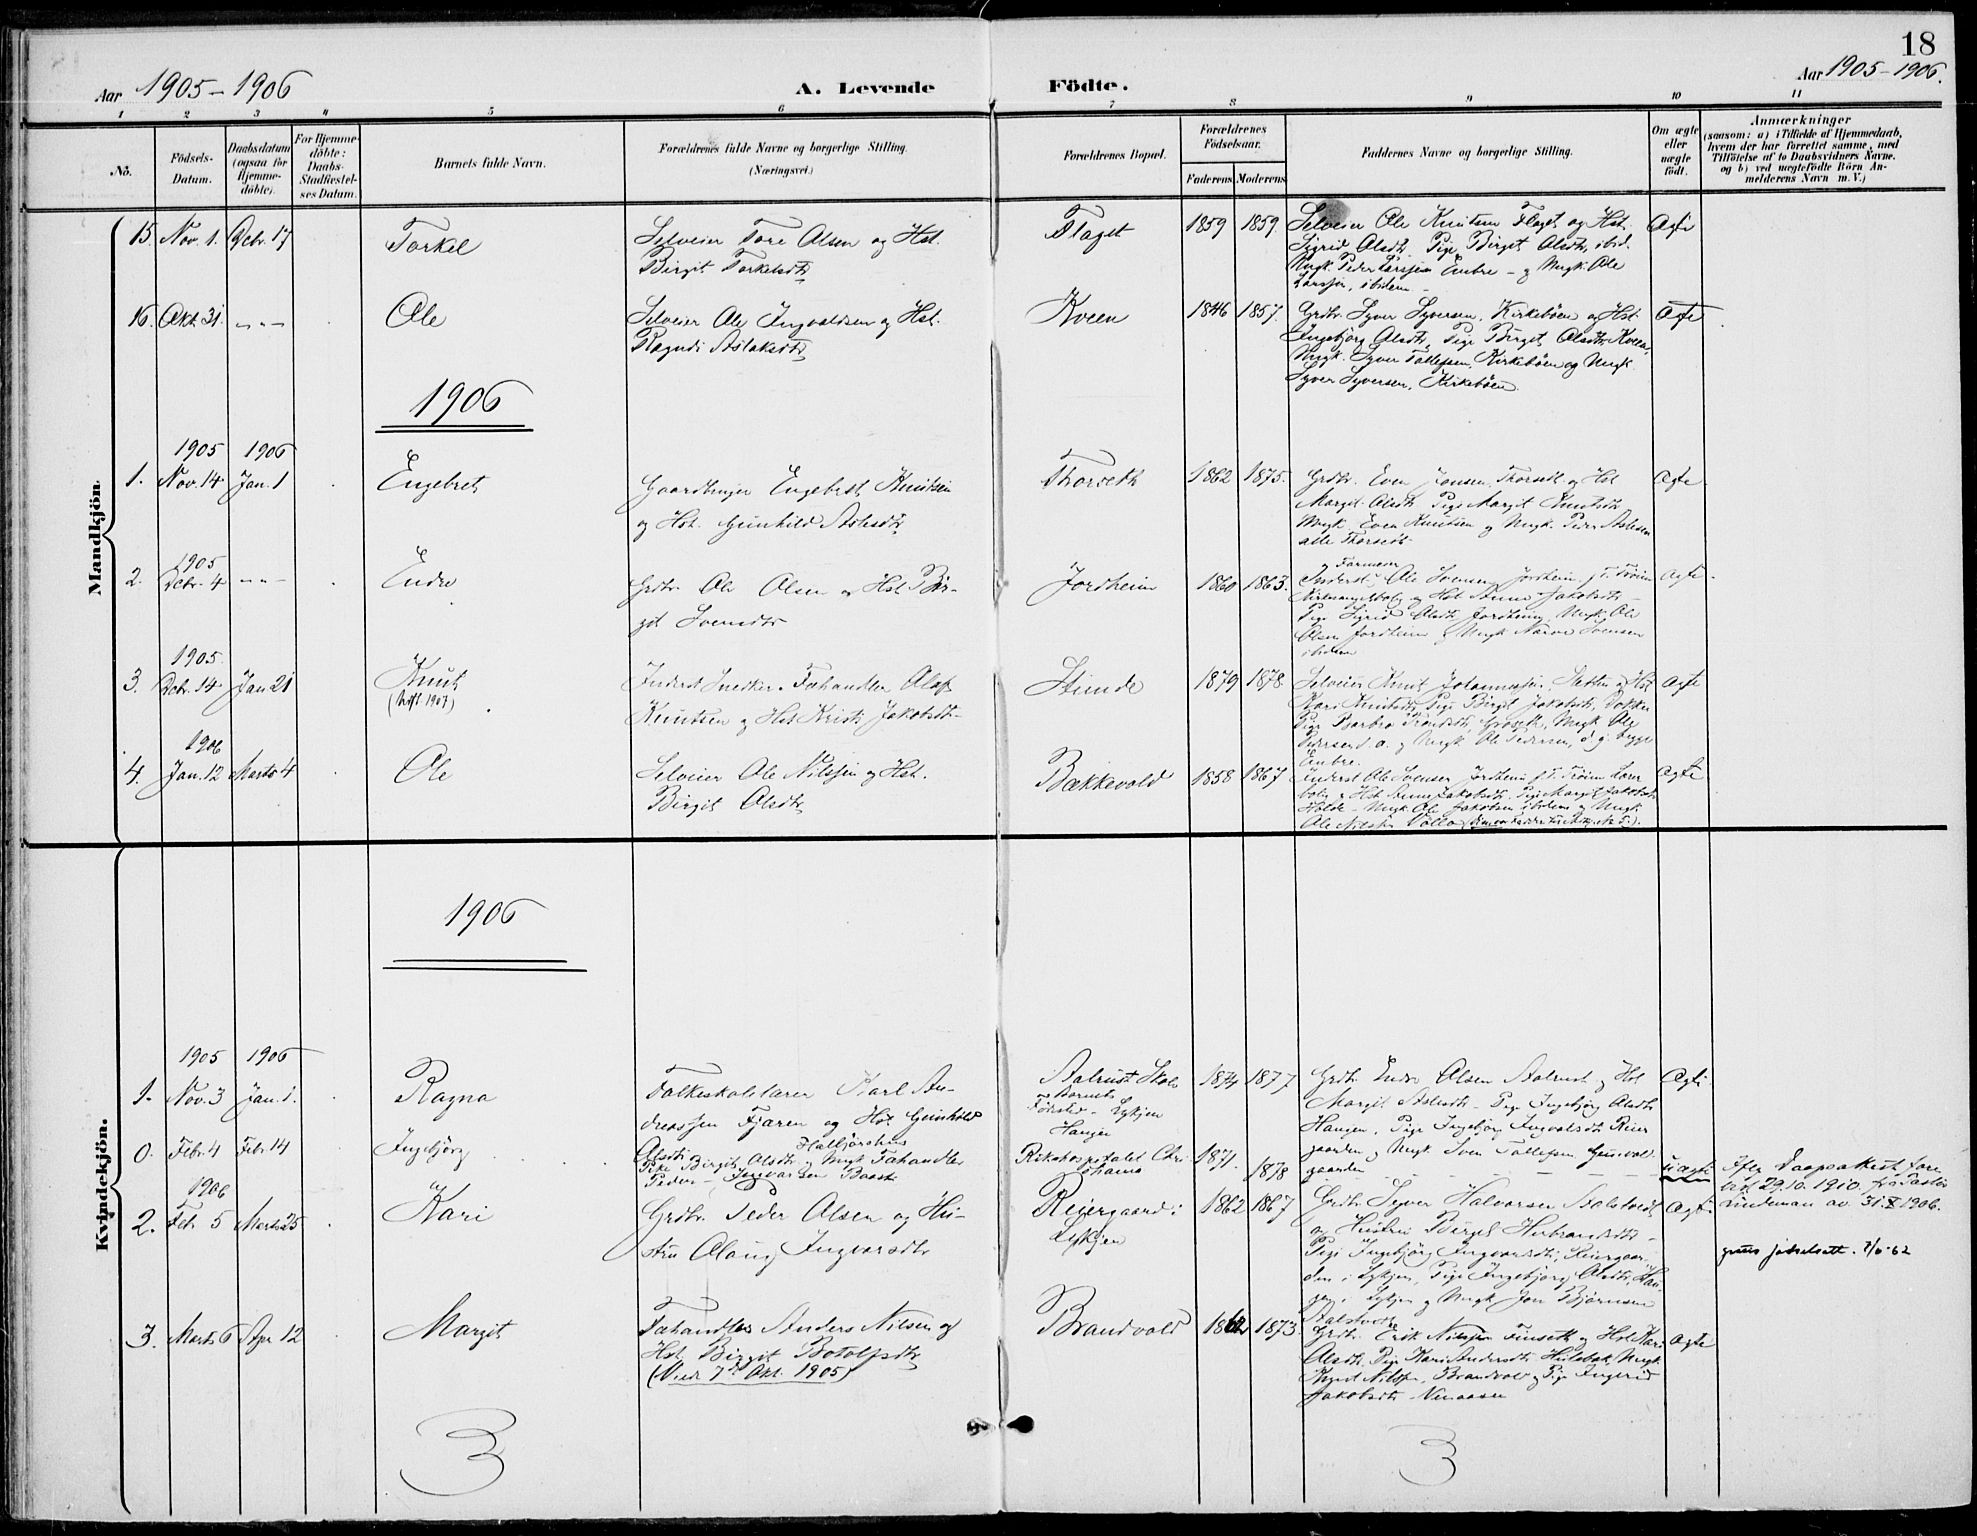 18
Aar 1905-1906
A. Levende
Födte.
Aar 1905-1906.
1 2 3 4 5 6 7 8 9 10 11
No.
Födsels-
Datum.
Daabsdatum
(ogsaa for
Hjemme-
döbte).
For Hjemme-
döbte:
Daabs-
Stadfæstel-
ses Datum.
Barnets fulde Navn.
Forældrenes fulde Navne og borgerlige Stilling.
(Næringsvei.)
Forældrenes Bopæl.
Forældrenes
Födselsaar.
Faderens Moderens
Faddernes Navne og borgerlige Stilling.
Om ægte
eller
uægte
født.
Anmærkninger
(saasom: a) i Tilfælde af Hjemmedaab,
hvem der har forrettet samme, med
Tilföielse af to Daabsvidners Navne.
og b) ved uægtefödte Börn An-
melderens Navn m. V.)
Mandkjön.
15. Nov. 1. Dcbr. 17
Torkel
Selveier Tore Olsen og Hst.
Birgit Torkelsdtr
Flaget
1859 1859.
Selveier Ole Knutsen Flaget og Hst.
Sigrid Olsdtr, Pige Birget Olsdtr, ibid.
Ungk. Peder Larssen Enbre - og Ungk. Ole
Larssen, ibidem -
Ægte
16. Okt. 31. -"-
Ole
Selveier Ole Ingvaldsen og Hst.
Ragndi Aslaksdtr
Kveen
1846 1857.
Grdbr. Syver Syversen, Kirkeböen og Hst.
Ingebjörg Olsdtr, Pige Birget Olsdtr Kveen,
Ungk. Syver Tollefsen, Kirkebøen og Ungk.
Syver Syversen, Kirkebøen
Ægte
1906
1905 1906
1. Nov. 14 Jan. 1
Engebret
Gaardbruger Engebret Knutsen
og Hst. Gunhild Aslesdtr
Thorseth
1862 1875.
Grdbr. Even Jonsen, Thorset og Hst
Margit Olsdtr Pige Margit Knutsdtr
Ungk. Even Knutsen og Ungk. Peder Aslesen
alle Thorseth
Ægte
1905
2. Dcbr. 4 -"-
Endre
Grdbr. Ole Olsen og Hst. Bir-
git Svensdtr
Jordheim
1860 1863.
og Farmoer
Inderst Ole Svensen Jordheim,
Kirkesangerbolig og Hst Anne Jakobsdtr -
Pige Sigrid Olsdtr Jordheim, Ungk. Ole
Olsen Jordheim og Ungk Narve Svensen
ibidem
Ægte
1905.
3. Dcbr. 14 Jan 21
Knut
Inderst Snedker - Fahandler Olaf
Knutsen og Hst Kristi Jakobsdt-
Stunde
1879 1878.
Selveier Knut Johannessen, Sletten og Hst
Kari Knutsdtr, Pige Birgit Jakobsdtr, Dokken
Pige Barbro Trondsdtr Groseth, Ungk Ole
Pedersen d. æ. og Ungk Ole Pedersen, d. y. begge
Enbre.
Ægte
1906
4. Jan. 12 Marts 4
Ole
Selveier Ole Nilssen og Hst.
Birgit Olsdtr
Bækkevold
1858 1867
Inderst Ole Svensen Jordheim
bolig og Hst Anne Jakobsdtr, Pige Margit Jakobsdtr
Holde - Ungk. Ole Jakobsen ibidem og Ungk
Ole Nilsen Volla
Ægte
Kvindekjön.
1906
1905 1906
1. Nov. 3 Jan. 1.
Ragna
Folkeskolelærer Karl An-
dreassen Fjæren og Hst. Gunhild
Olsdtr
Aalrust Skole
Barnets
Fødested - Lykjen
Haugen
1874 1877
Grdbr. Endre Olsen Aalrust og Hst
Margit Aslesdtr - Pige Ingebjörg Olsdtr
Haugen, Pige Ingebjörg Ingvalsdtr Reier
gaarden og Ungk. Sven Tollefsen Gunvold-
gaarden
Ægte
0. Febr. 4 Febr. 14
Ingebjörg
Pike Birgit Olsdtr og Ungk. Fahandler
Peder Ingvarsen Baast
Rikshospitalet Chri
stiania
1871. 1878
uægte
Efter Daapsattest fore
vist 29.10.1910. fra Pastor
Lindeman av 31.X.1906.
1906
2. Febr. 5 Marts 25
Kari
Grdbr. Peder Olsen og Hu-
stru Olaug Ingvarsdtr
Reiergaard i
Lykjen
1862 1867
Grdbr. Syver Halvorsen Sto
og Hustru Birgit Herbrandsdtr -
Pige Ingebjörg Ingvarsdtr, Reiergaar-
den i Lykjen, Pige Ingebjorg Olsdtr, Hau-
gen i Lykjen og Ungk Jon Björnsen
Ægte
3. Marts 6 Apr. 12
Margit
Fahandler Anders Nilsen og
Hst. Birgit Botolfsdtr
(Viede 7de Okt. 1905)
Brandvold
1862 1873.
Grdbr. Erik Nilssen Finseth og Hst Kari
Olsdtr, Pige Kari Andersdtr Hulebak, Ungk
Knut Nilsen, Brandvold og Pige Ingerid
Jakobsdtr
Ægte
3
3